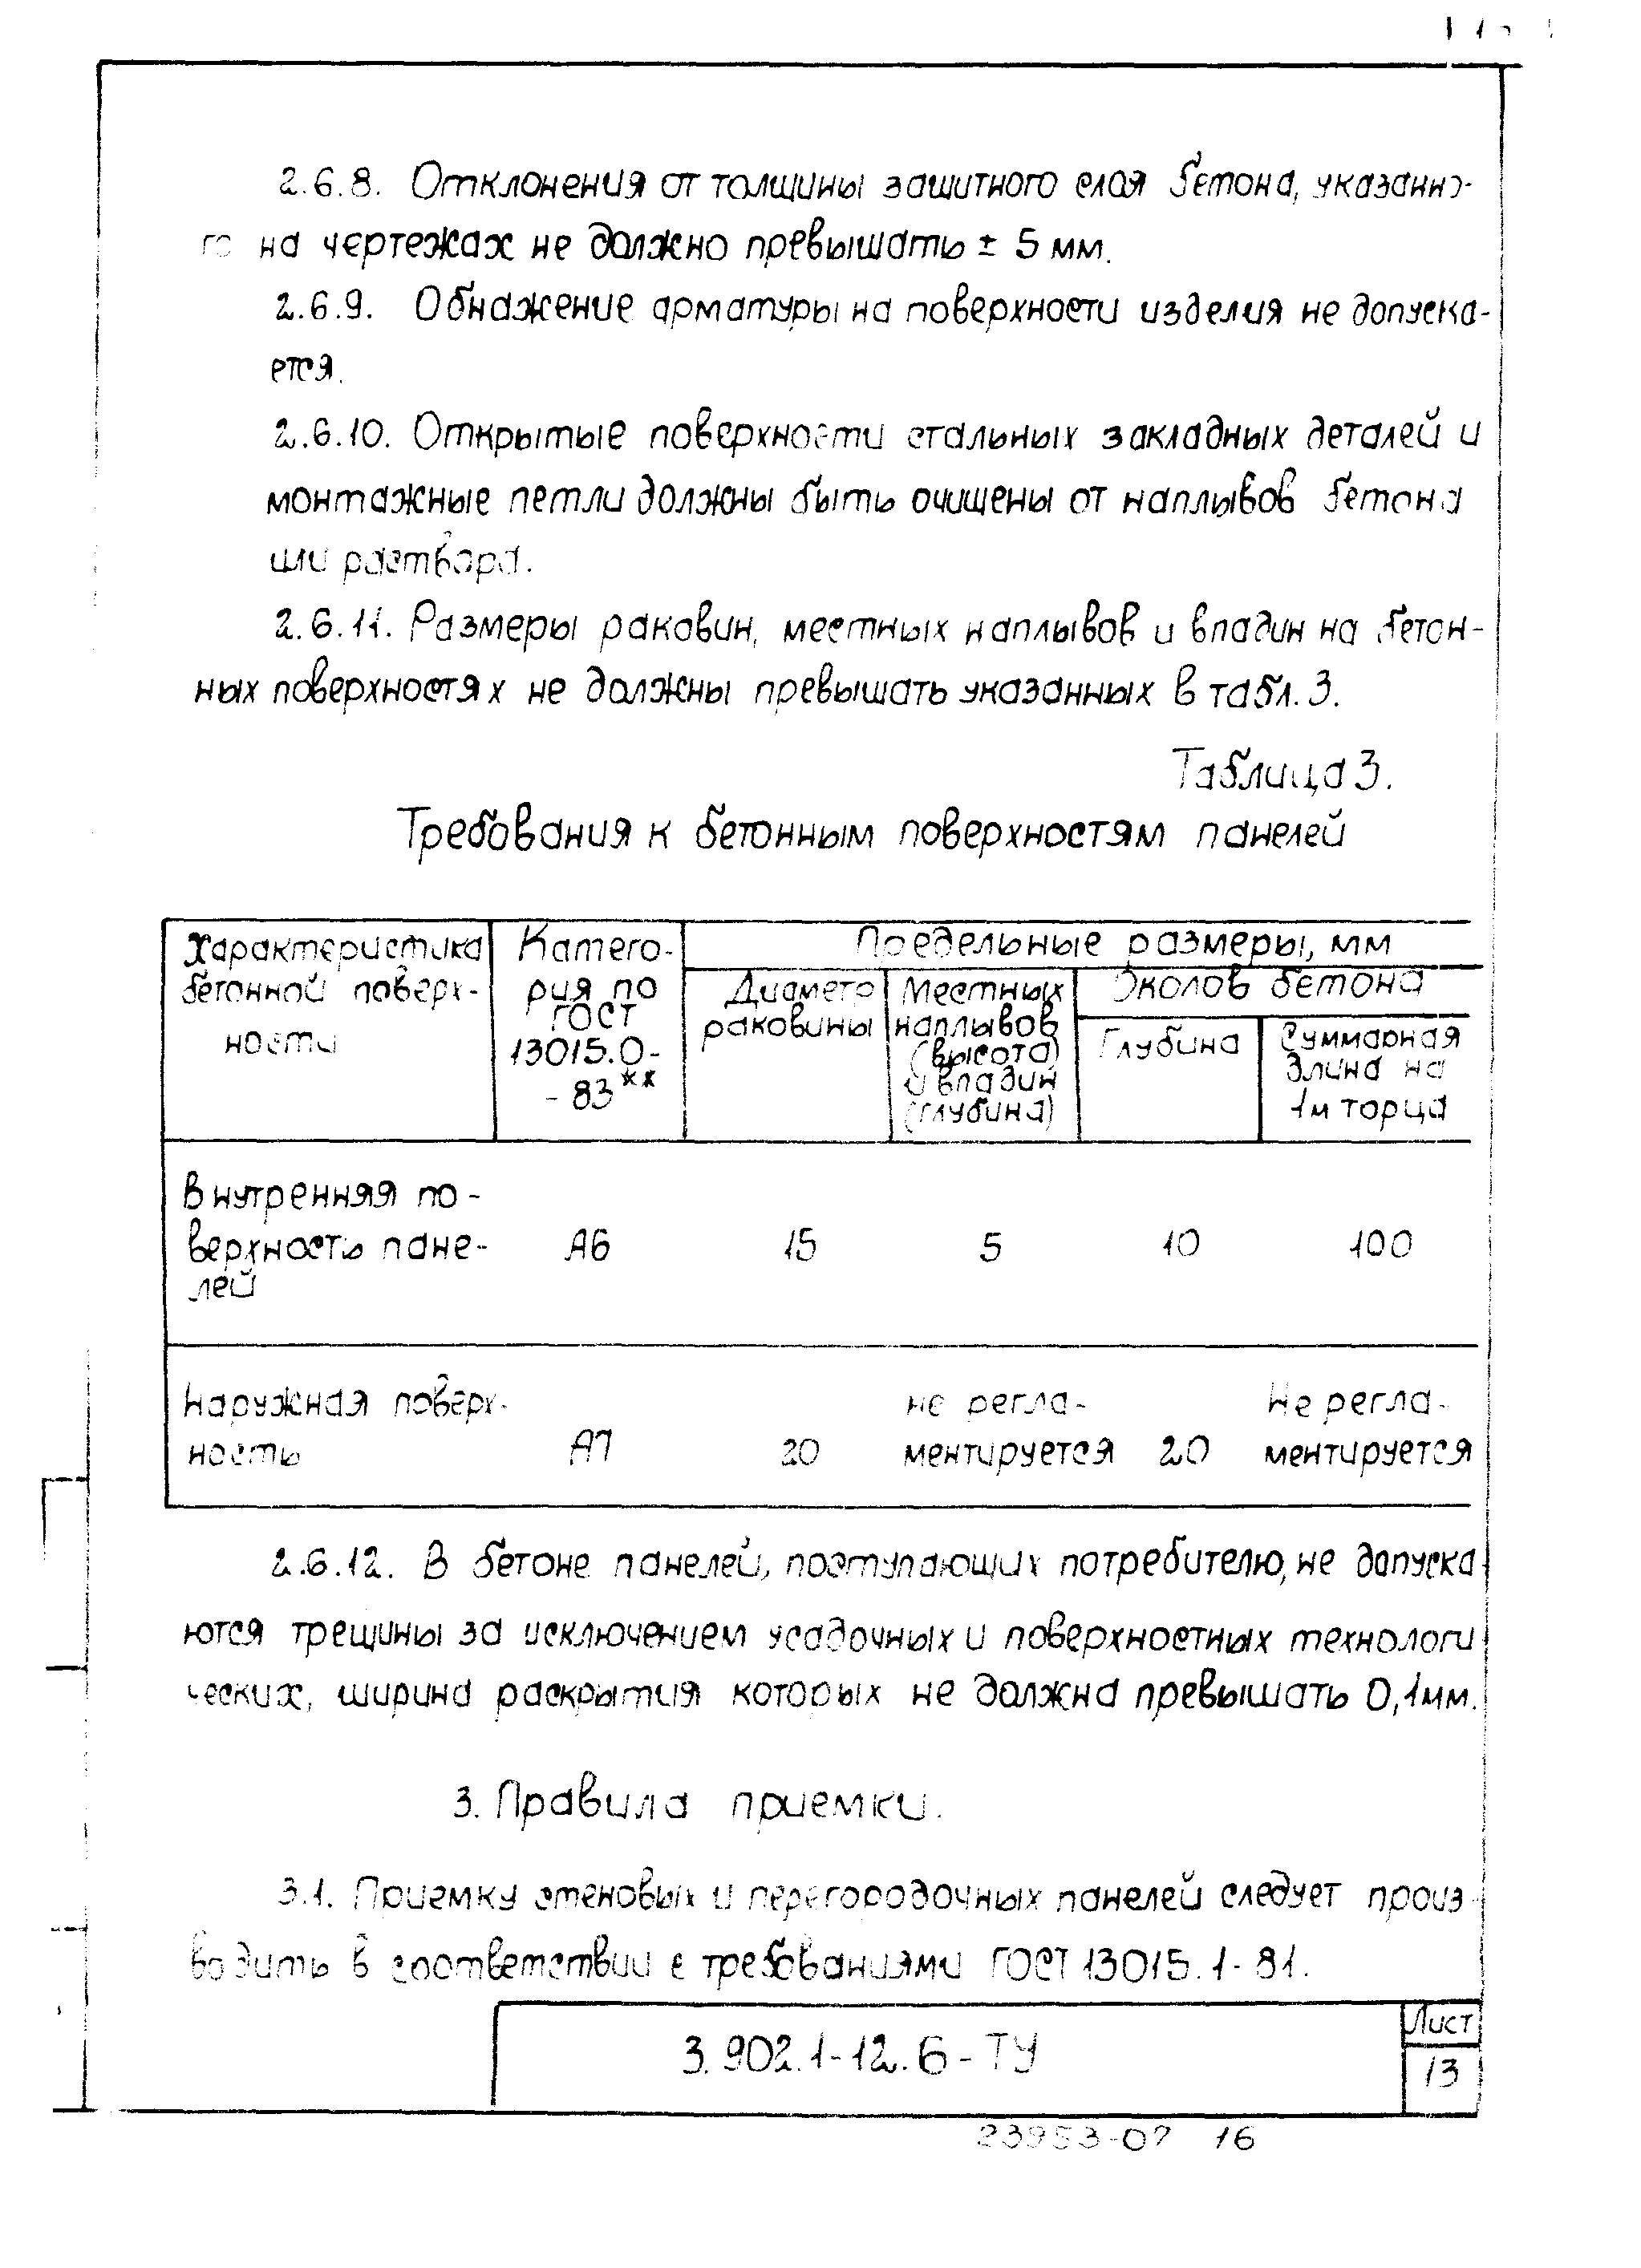 2.6.8. Отклонения от толщины защитного слоя бетона, указанно-
го на чертежах не должно превышать ± 5 мм.
2.6.9. Обнажение арматуры на поверхности изделия не допуска-
ется.
2.6.10. Открытые поверхности стальных закладных деталей и
монтажные петли должны быть очищены от наплывов бетона
или раствора.
2.6.11. Размеры раковин, местных наплывов и впадин на бетон-
ных поверхностях не должны превышать указанных в табл. 3.
Таблица 3.
Требования к бетонным поверхностям панелей
Характеристика
бетонной поверх-
ности
Катего-
рия по
ГОСТ
13015.0-
- 83**
Предельные размеры, мм
Диаметр
раковины
Местных
наплывов
(высота)
и впадин
(глубина)
Околов бетона
Глубина
Суммарная
длина на
1м торца
Внутренняя по-
верхность пане-
лей
А6
15
5
10
100
Наружная поверх-
ность
А7
20
не регла-
ментируется
20
Не регла-
ментируется
2.6.12. В бетоне панелей, поступающих потребителю, не допуска
ются трещины за исключением усадочных и поверхностных технологи
ческих, ширина раскрытия которых не должна превышать 0,1мм.
3. Правила приемки.
3.1. Приемку стеновых и перегородочных панелей следует произ-
водить в соответствии с требованиями ГОСТ 13015.1-81.
3.902.1-12.6-ТУ
Лист
13
23953-07 16